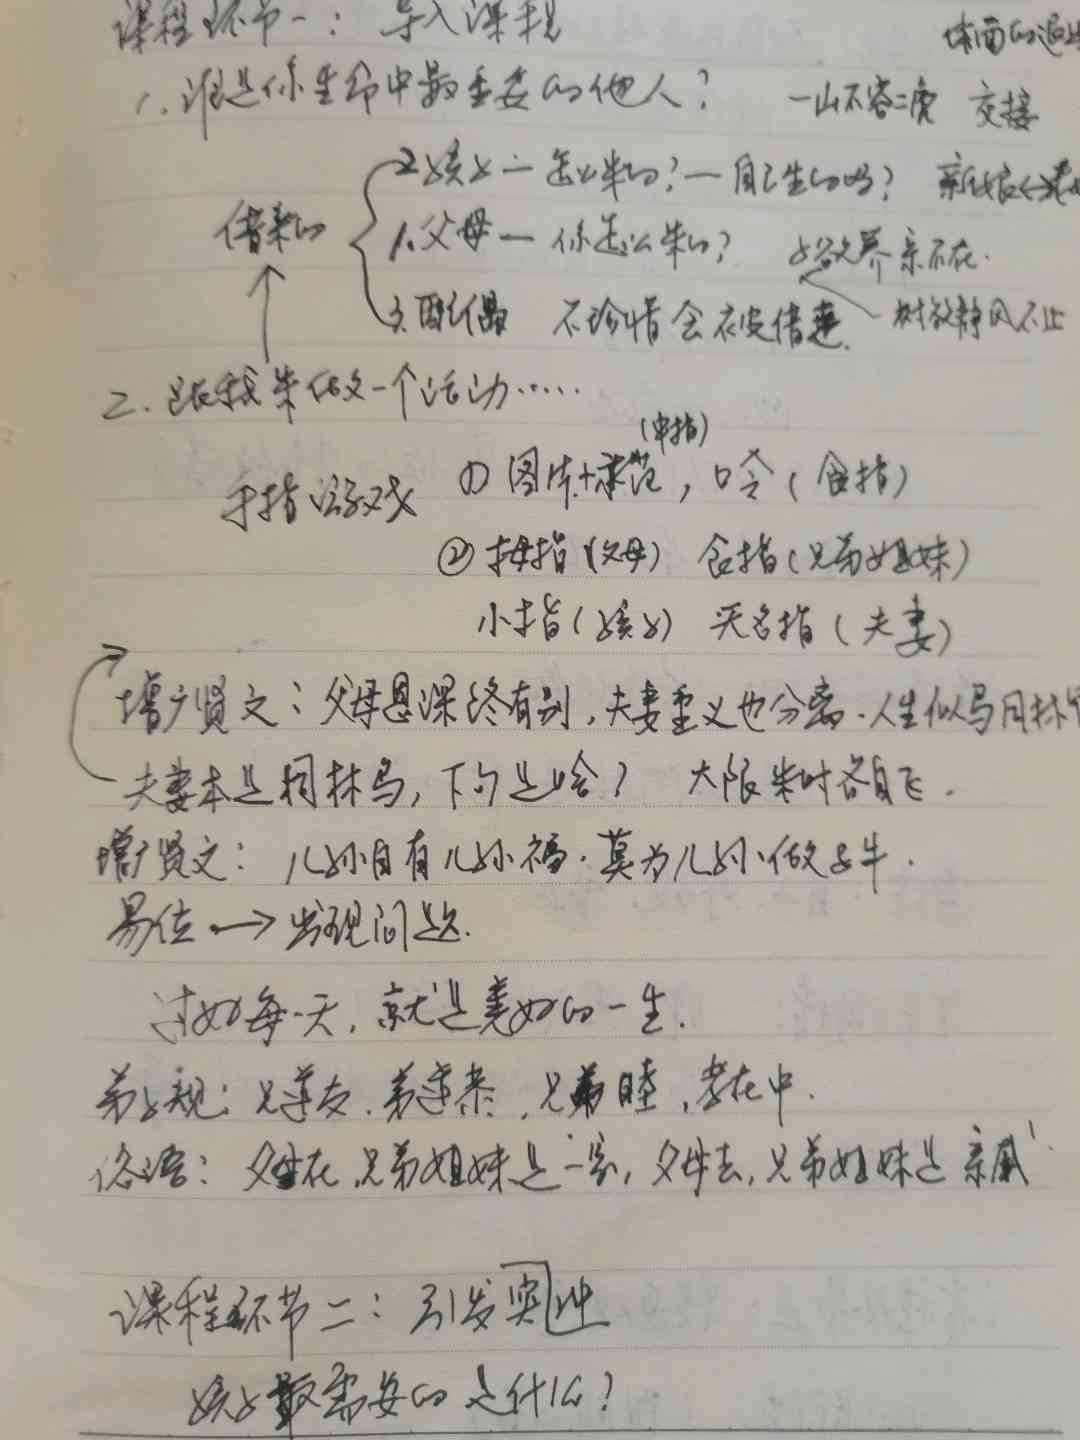 课程环节一：导入课程
体面的退出
1.谁是你生命中最重要的他人？ 一山不容二虎 交接
2.孩子一怎么来的？一自己生的吗？ 新娘
借来的 1.父母一你怎么来的？ 子欲养亲不在.
3.配偶 不珍惜会被借走. 树欲静风不止
二.跟我来做一个活动……
(中指)
手指游戏 ①图片+示范，口令(食指)
②拇指(父母) 食指(兄弟姐妹)
小指(孩子) 无名指(夫妻)
增广贤文：父母恩深终有别，夫妻重义也分离.人生似鸟同林
夫妻本是同林鸟，下句是啥？ 大限来时各自飞.
增广贤文：儿孙自有儿孙福.莫为儿孙做马牛.
易位→发现问题.
过好每一天，就是美好的一生.
弟子规：兄道友.弟道恭，兄弟睦，孝在中.
俗语：父母在，兄弟姐妹是一家，父母去，兄弟姐妹是亲戚.
课程环节二：引发
孩子最需要的是什么？